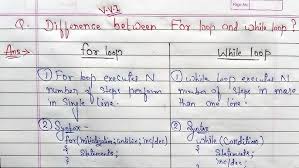 V.V.I
Page No.
Q. Difference between For loop and while loop ?
Ans→ for loop
While loop
① For loop executes N
number of steps perform
in single line.
① While loop executes N
number of steps in more
than one line.
② Syntax-
for(initialization; condition; inc/dec)
{ Statements;
② Syntax
while (Condition)
{ Statements;
inc/dec;